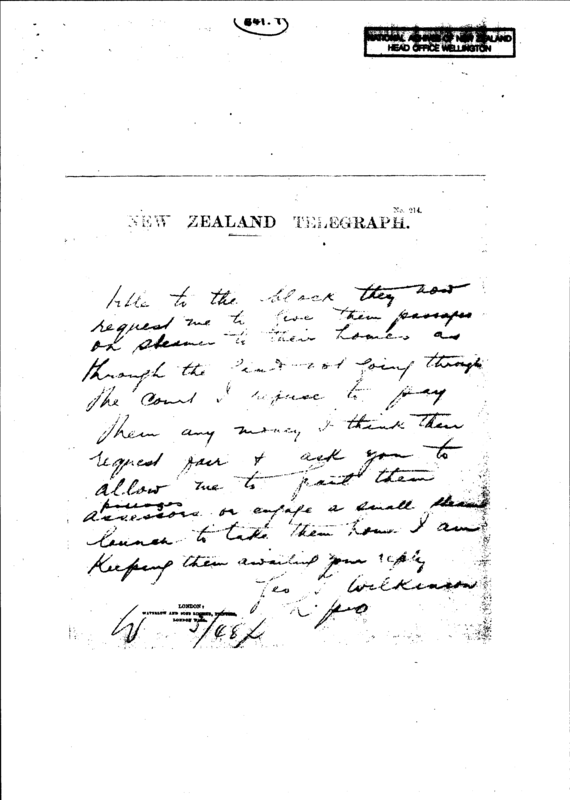 841.T
NATIONAL ARCHIVES OF NEW ZEALAND
HEAD OFFICE WELLINGTON
No. 214.
NEW ZEALAND TELEGRAPH.
title to the block they now
request me to give them passages
on steamer to their homes as
through the land not going through
the Court I refuse to pay
them any money I think their
request fair & ask you to
allow me to grant them
passages
assessors or engage a small steam
launch to take them home I am
keeping them awaiting your reply
Geo T Wilkinson
LONDON:
WATERLOW AND SONS LIMITED, PRINTERS,
LONDON WALL.